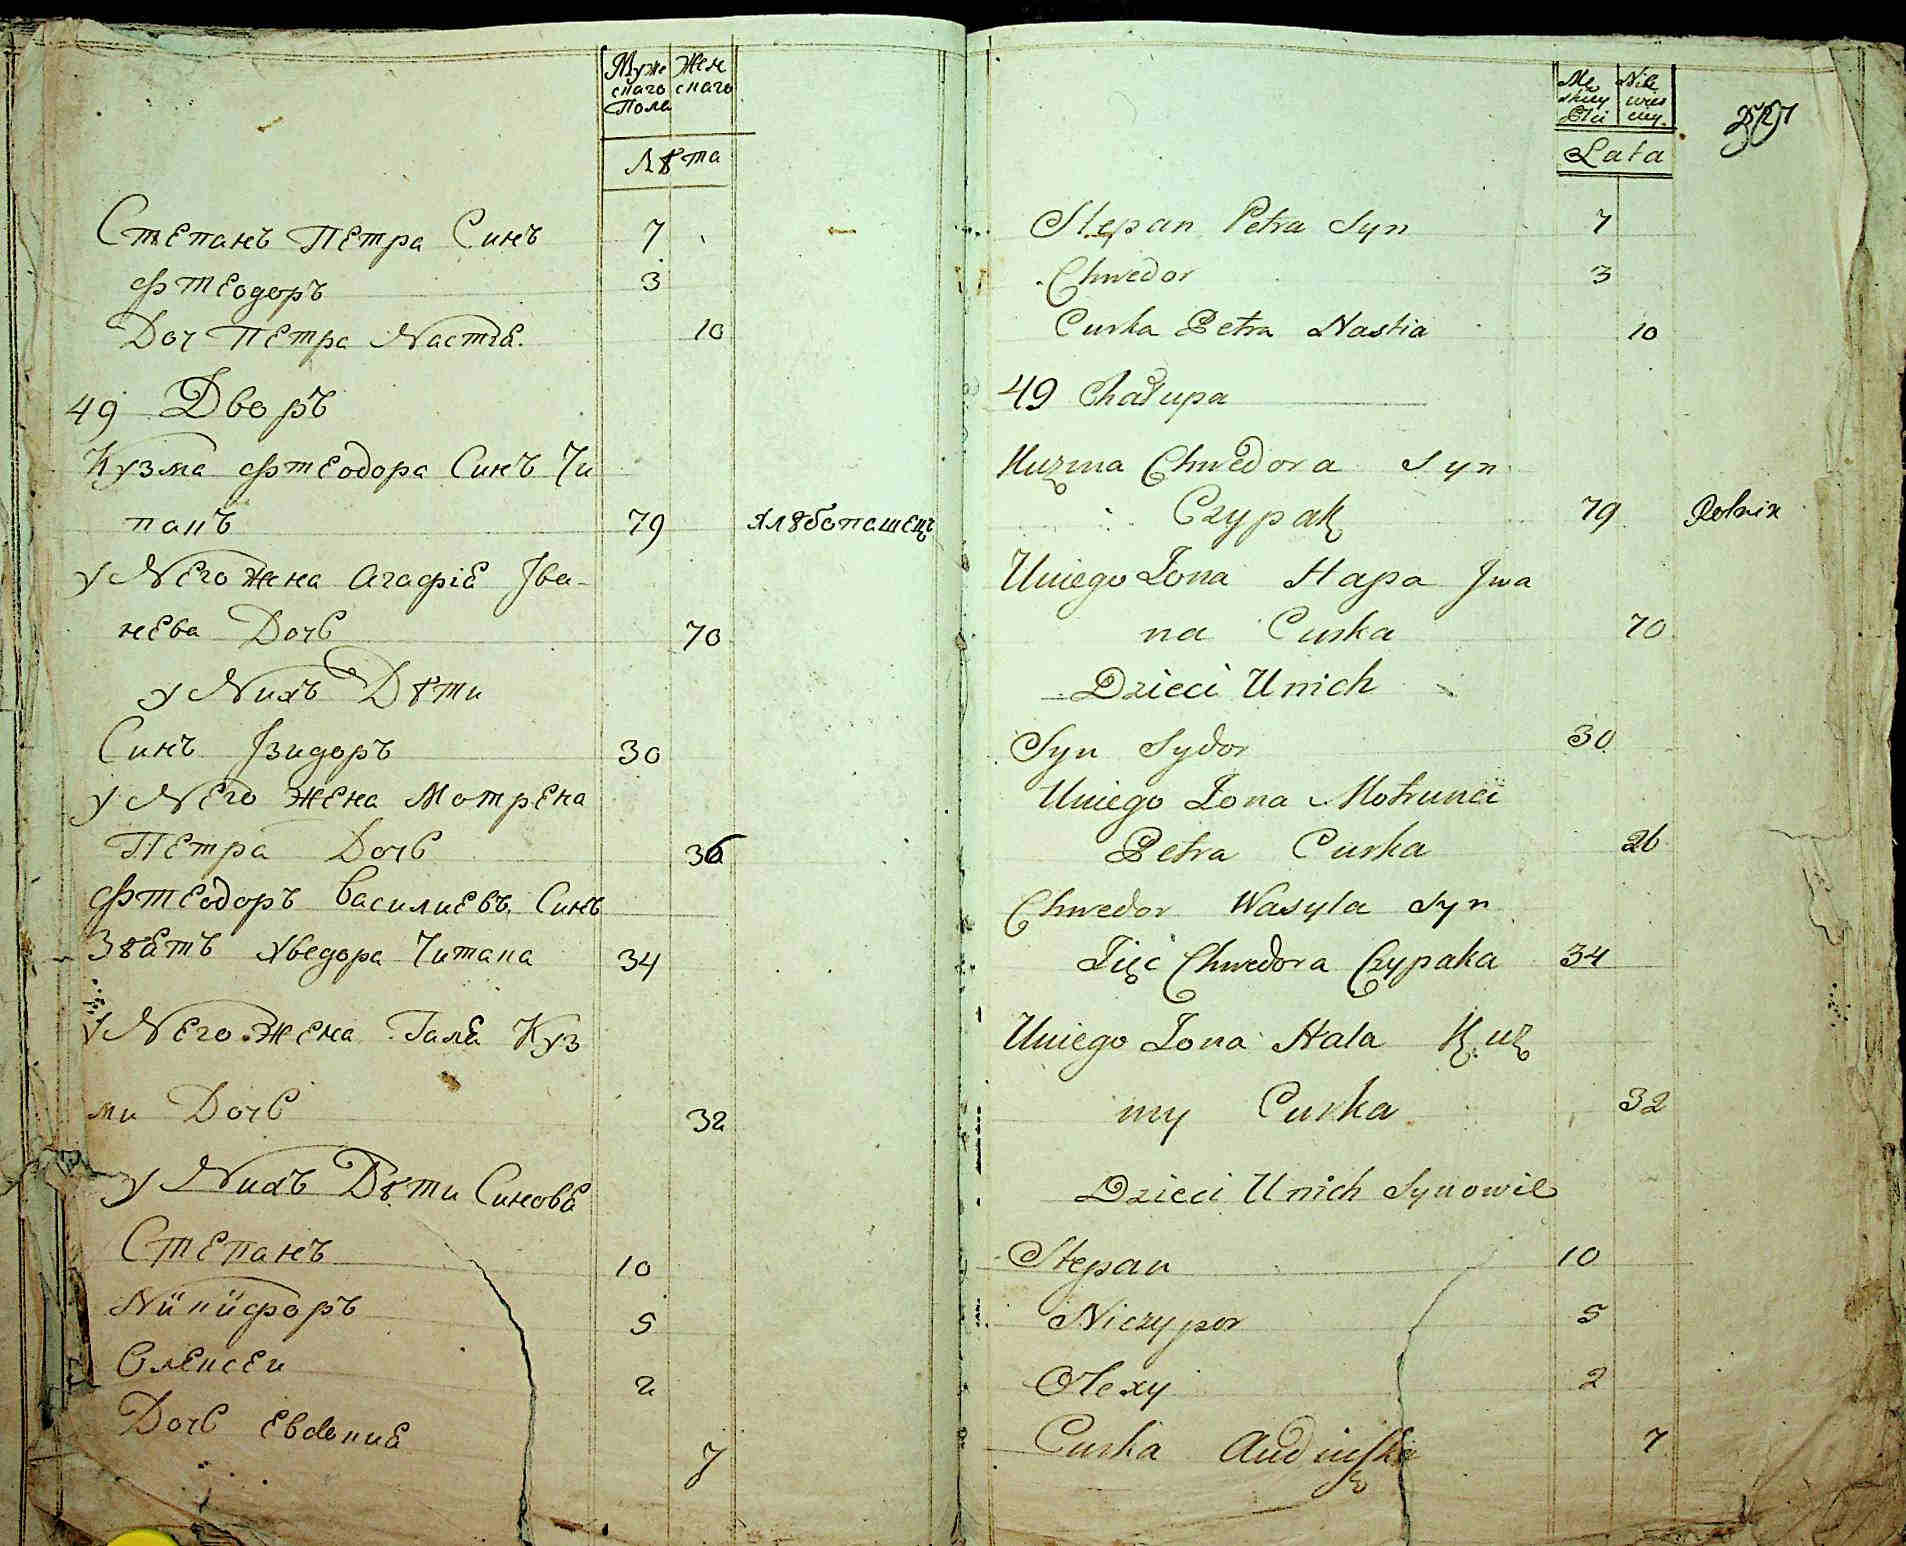 Муже Жен
скаго скаго
Пола
Лѣта
Степанъ Петра Синъ 7
Фтеодоръ 3
Доч Петра Настіѣ. 10
49 Дворъ
Кузма Фтеодора Синъ Чи
пакъ 79 Хлѣбопашецъ
у Него Жена Агафіѣ Іва-
нева Дочь 70
у Нихъ Дѣти
Синъ Ізидоръ 30
у Него Жена Мотрена
Петра Дочь 36
Фтеодоръ Василиевъ Синъ
Зѣать Хведора Чипака 34
у Него Жена Галѣ Куз
ми Дочь 32
у Нихъ Дѣти Синовѣ
Степанъ 10
Никифоръ 5
Олексеи 2
Дочь Евдокиѣ 7
Mę Nie
skiey wies
Płci ciey.
Lata
Stepan Petra Syn 7
Chwedor 3
Curka Petra Nastia 10
49 Chałupa
Kuzma Chwedora Syn
Czypak 79 Rolnik
Uniego Żona Hapa Jwa
na Curka 70
Dzieci Unich
Syn Sydor 30
Uniego Żona Motruna
Petra Curka 26
Chwedor Wasyla Syn
Zięć Chwedora Czypaka 34
Uniego Żona Hala Kuz
my Curka 32
Dzieci Unich Synowie
Stepan 10
Niczypor 5
Olexy 2
Curka 7